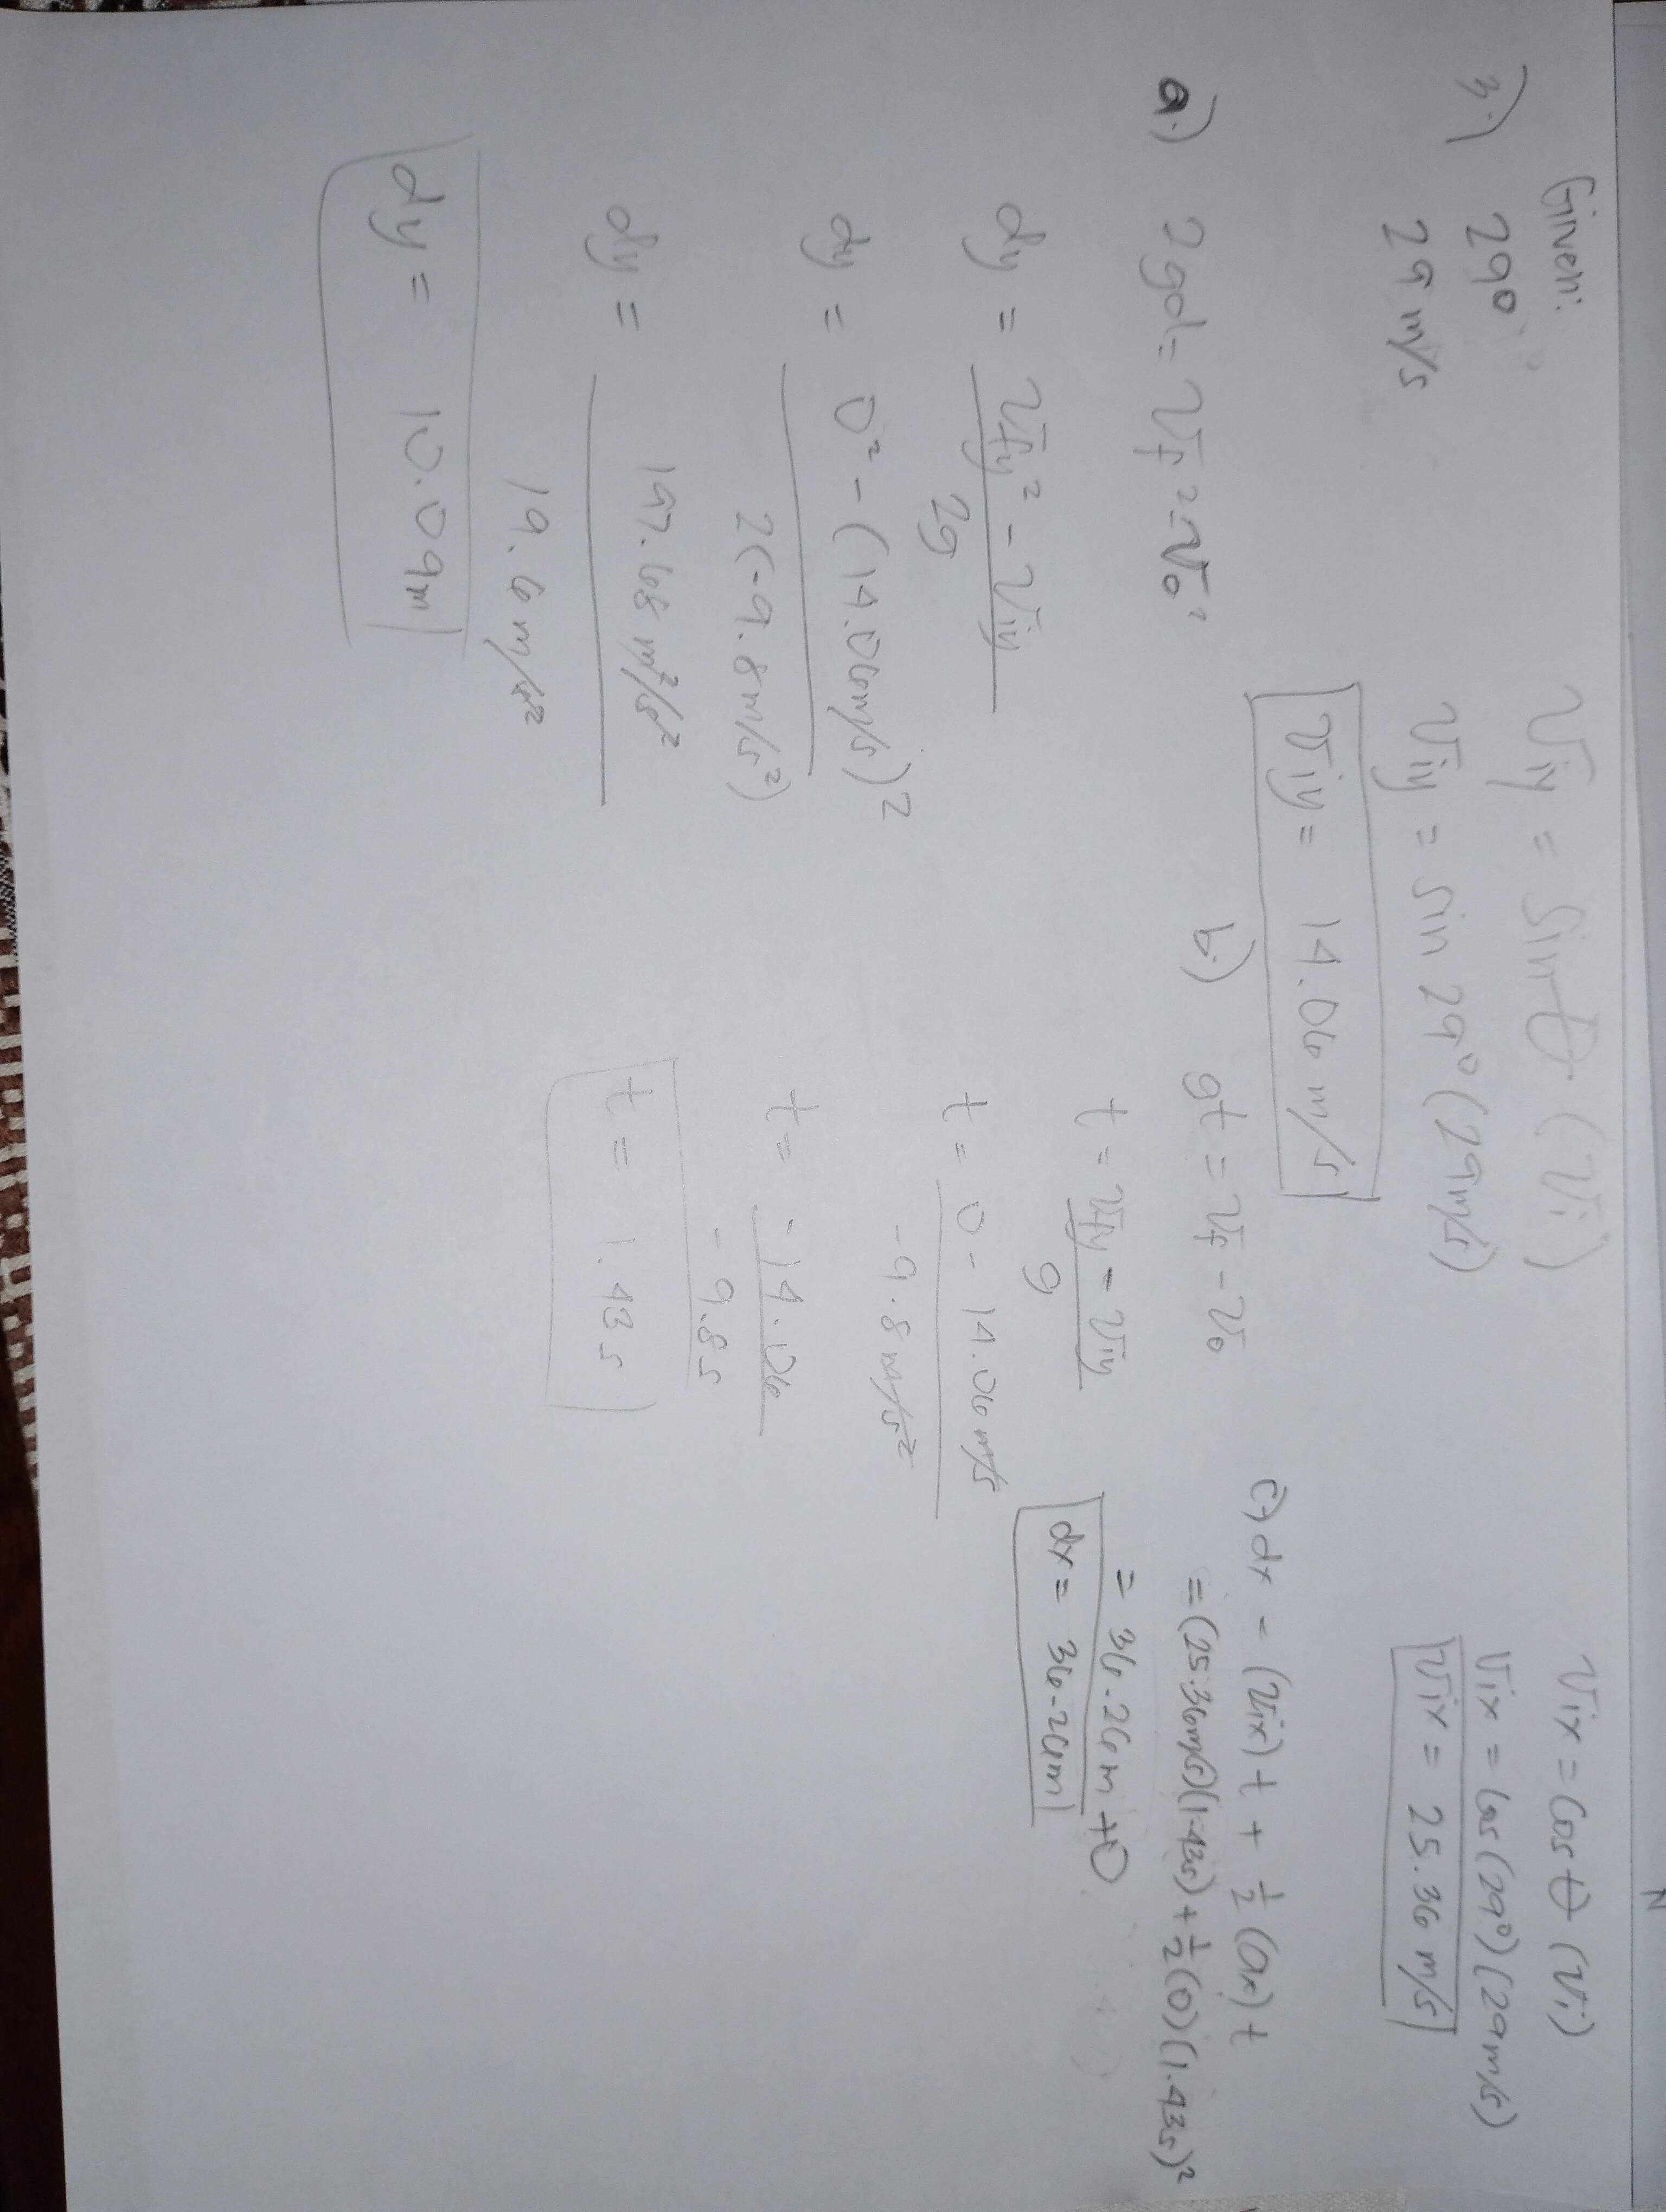 N
Given:
3.) 29°
29 m/s
Viy = Sin θ (Vi)
Viy = sin 29° (29m/s)
Viy = 14.06 m/s
Vix = Cos θ (Vi)
Vix = Cos (29°) (29m/s)
Vix = 25.36 m/s
a.) 2gd = Vf² - Vo²
dy = Vfy² - Viy / 2g
dy = 0² - (14.06m/s)² / 2(-9.8m/s²)
dy = 197.68 m²/s² / 19.6 m/s²
dy = 10.09m
b.) gt = Vf - Vo
t = Vfy - Viy / g
t = 0 - 14.06 m/s / -9.8 m/s²
t = -14.06 / -9.8s
t = 1.43 s
c.) dx = (Vix) t + 1/2 (ax) t
= (25.36m/s)(1.43s) + 1/2 (0) (1.43s)²
= 36.26m + 0
dx = 36.26m